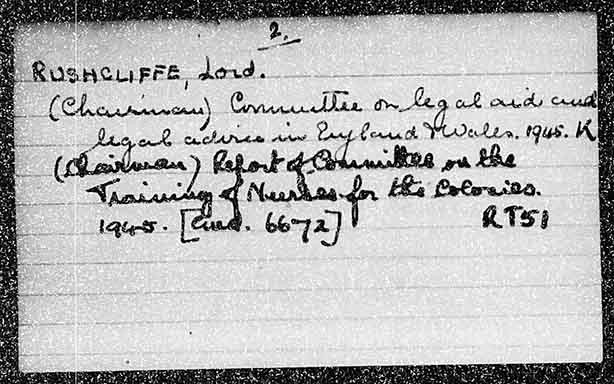 2.
RUSHCLIFFE, Lord.
(Chairman) Committee on legal aid and
legal advice in England & Wales. 1945. K
(Chairman) Report of Committee on the
Training of Nurses for the Colonies.
1945. [Cmd. 6672] RT51